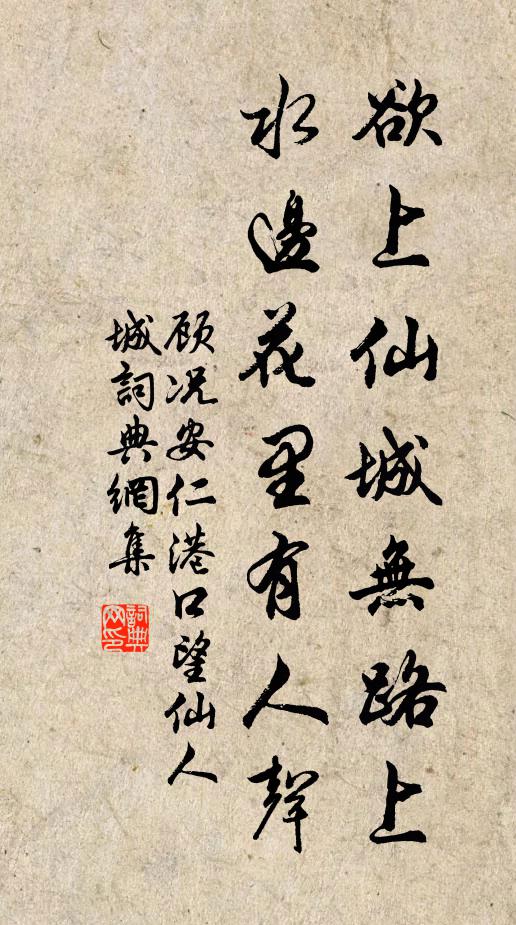 欲上仙城無路上
水邊花里有人聲
顾况安仁港口望仙人
城詞典網集
詞典网印